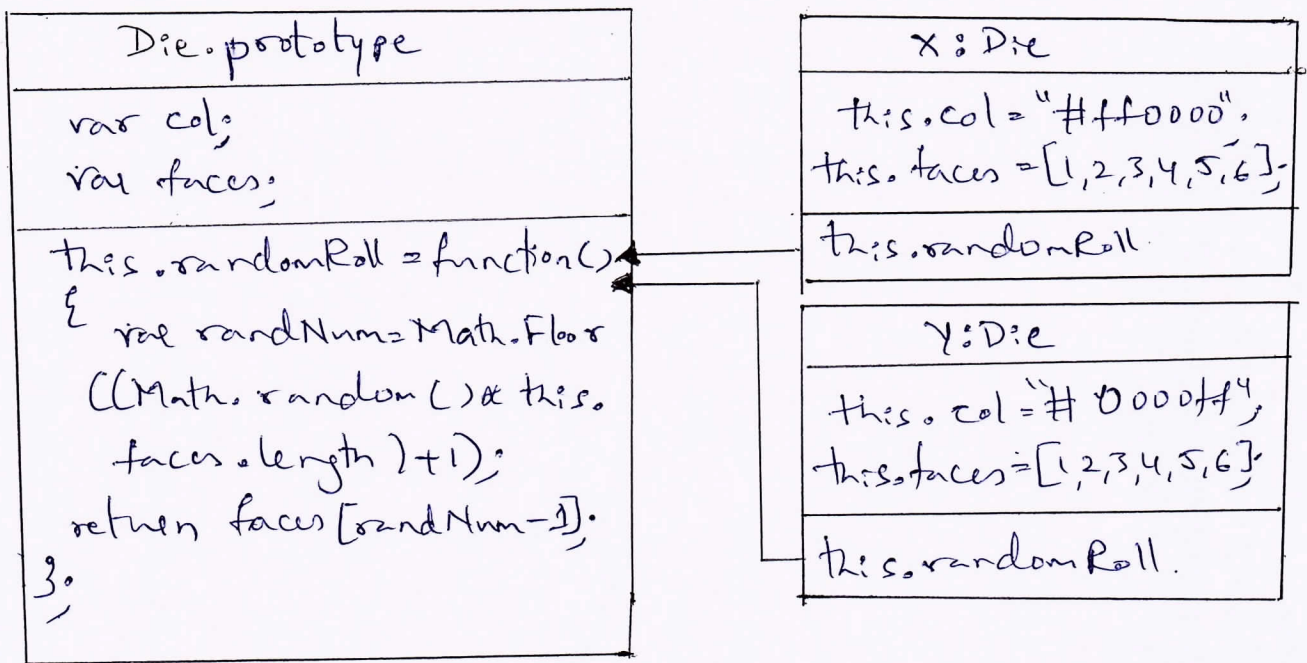 Die.prototype
var col;
var faces;
this.randomRoll = function()
{
var randNum = Math.Floor
((Math.random() * this.
faces.length)+1);
return faces[randNum-1];
};
X:Die
this.col = "#ff0000";
this.faces = [1,2,3,4,5,6];
this.randomRoll.
Y:Die
this.col = "#0000ff";
this.faces = [1,2,3,4,5,6];
this.randomRoll.